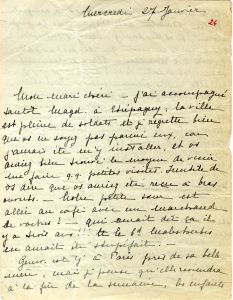 Mercredi 27 Janvier
26
Mon mari chéri - j'ai accompagné
tantôt Magd. à Étrépagny; la ville
est pleine de soldats et je regrette bien
que vs ne soyez pas parmi eux, car
j'aurais été m'y installer, et vs
auriez bien trouvé le moyen de venir
me faire q.q. petites visites. Inutile de
vs dire que vs auriez été reçu à bras
ouverts. - Notre petite sœur est
allée au café avec un marchand
de vaches! - qui aurait dit ça il
y a trois ans!!! - et le Bd Malesherbes
en aurait été stupéfait.
est à Paris près de sa belle
mère, mais je pense qu'elle reviendra
à la fin de la semaine, les enfants